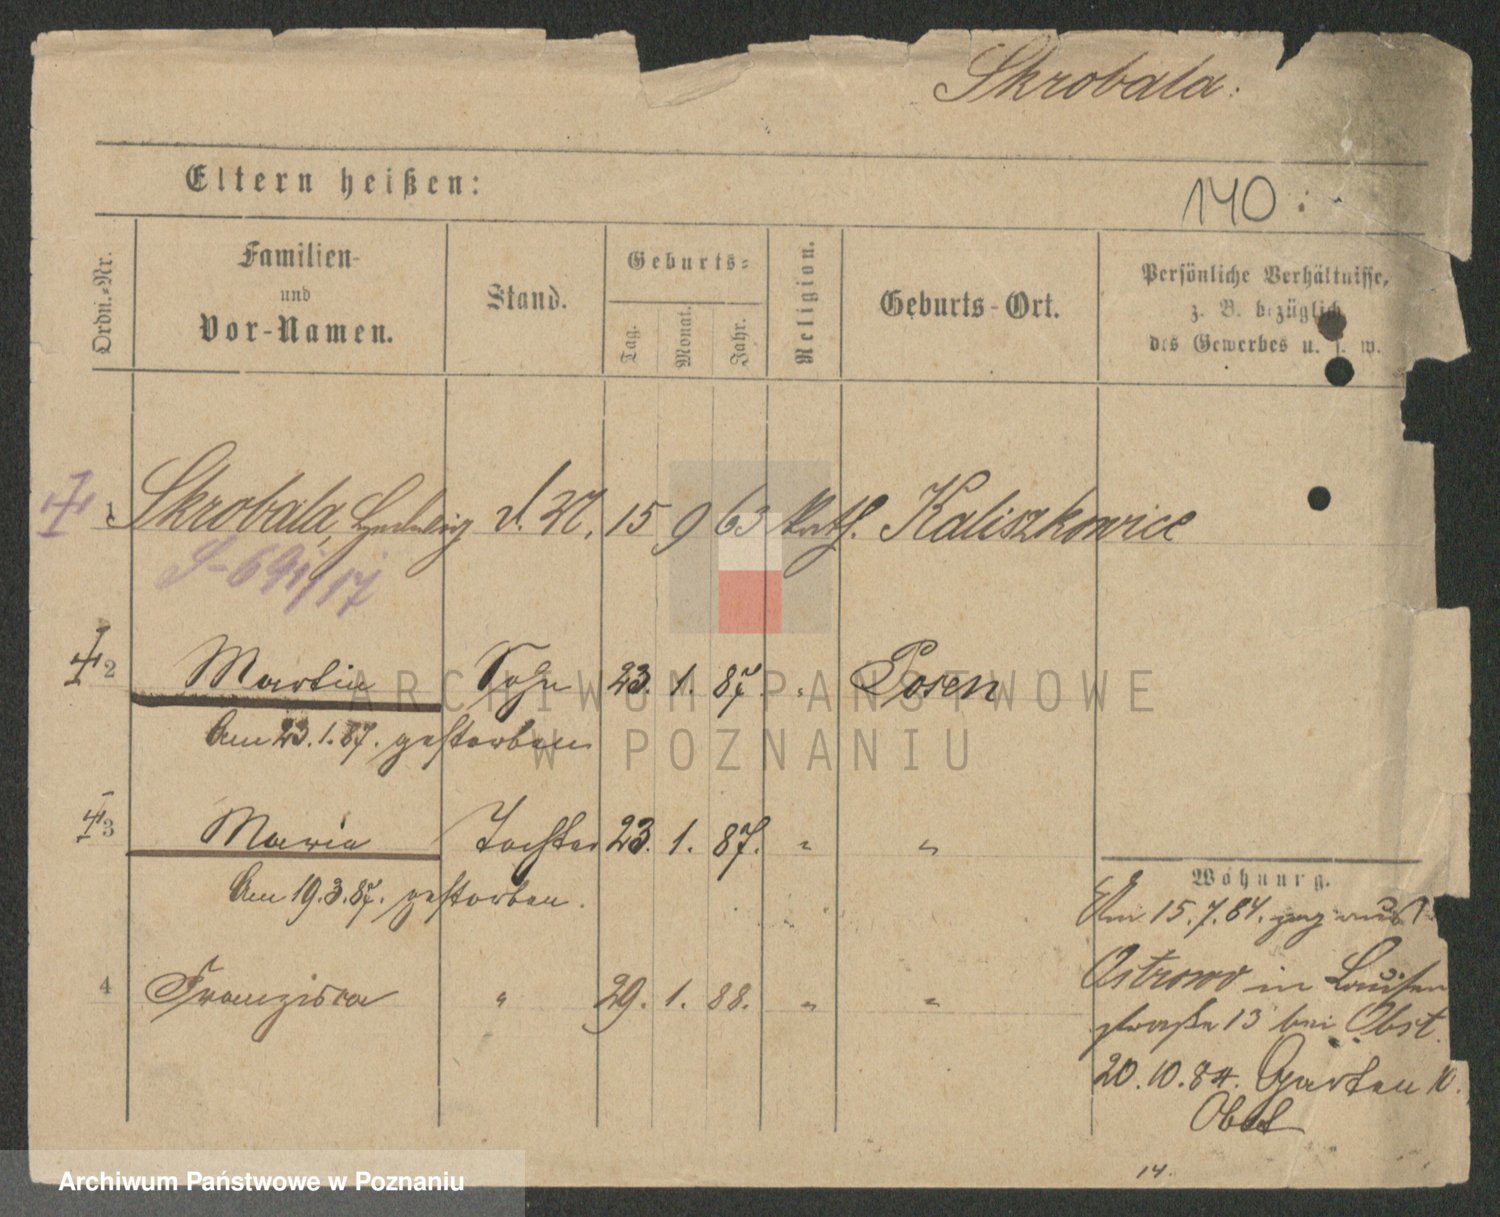 Skrobala.
Eltern heißen:
140
Ordn.-Nr.
Familien-
und
Vor-Namen.
Stand.
Geburts-
Tag.
Monat.
Jahr.
Religion.
Geburts-Ort.
Persönliche Verhältnisse,
z. B. bezüglich
des Gewerbes u. s. w.
1 Skrobala, Hedwig d. M. 15 9 63 kath. Kaliszkowice
S-691/17
2 Martin Sohn 23. 1. 87. " Posen
Am 23. 1. 87. gestorben
3 Maria Tochter 23. 1. 87. " "
Am 19. 3. 87. gestorben.
4 Franzisca " 29. 1. 88. " "
Wohnung.
Am 15. 7. 84. zog aus
Ostrowo in Louisen
straße 13 bei Obst.
20. 10. 84. Garten 10.
Obst
14.
ARCHIWUM PAŃSTWOWE
W POZNANIU
Archiwum Państwowe w Poznaniu